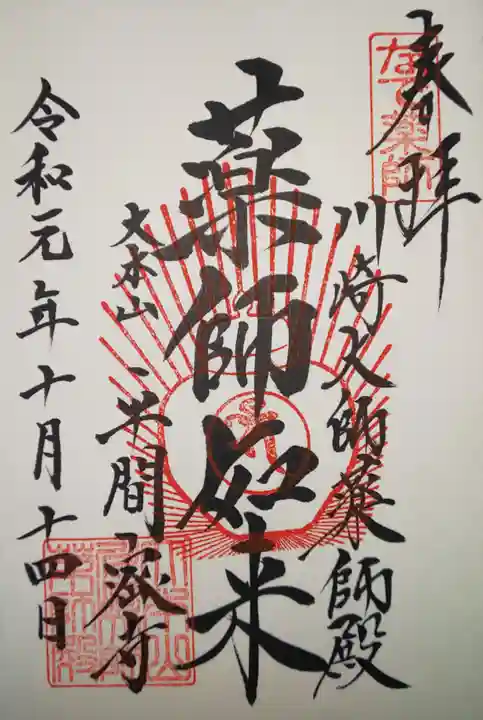 奉拝
川崎大師薬師殿
薬師如来
大本山
平間寺
令和元年十月十四日
なで薬師